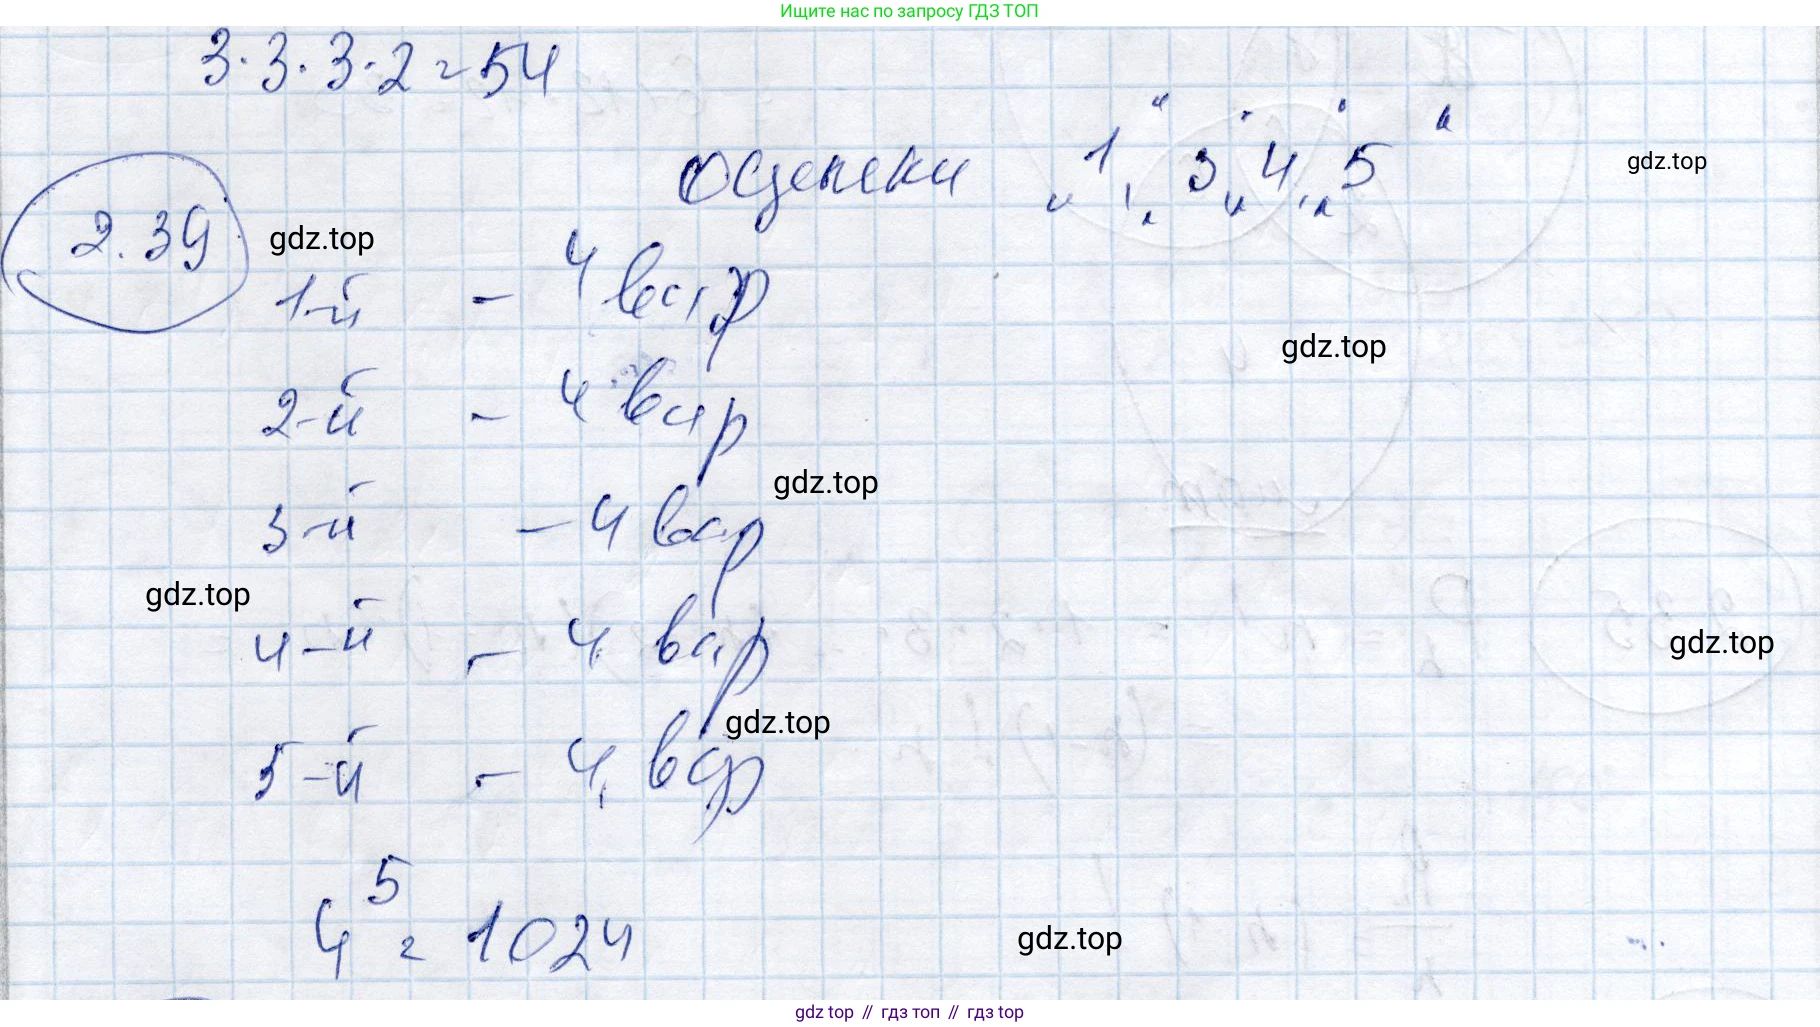 Ищите нас по запросу ГДЗ ТОП
3·3·3·2=54
оценки „1", „3", „4", „5"
gdz.top
2.39
gdz.top
1-й - 4 вар
gdz.top
2-й - 4 вар
gdz.top
3-й - 4 вар
gdz.top
4-й - 4 вар
gdz.top
gdz.top
5-й - 4 вар
4⁵ = 1024
gdz.top
gdz top // гдз топ // гдз top